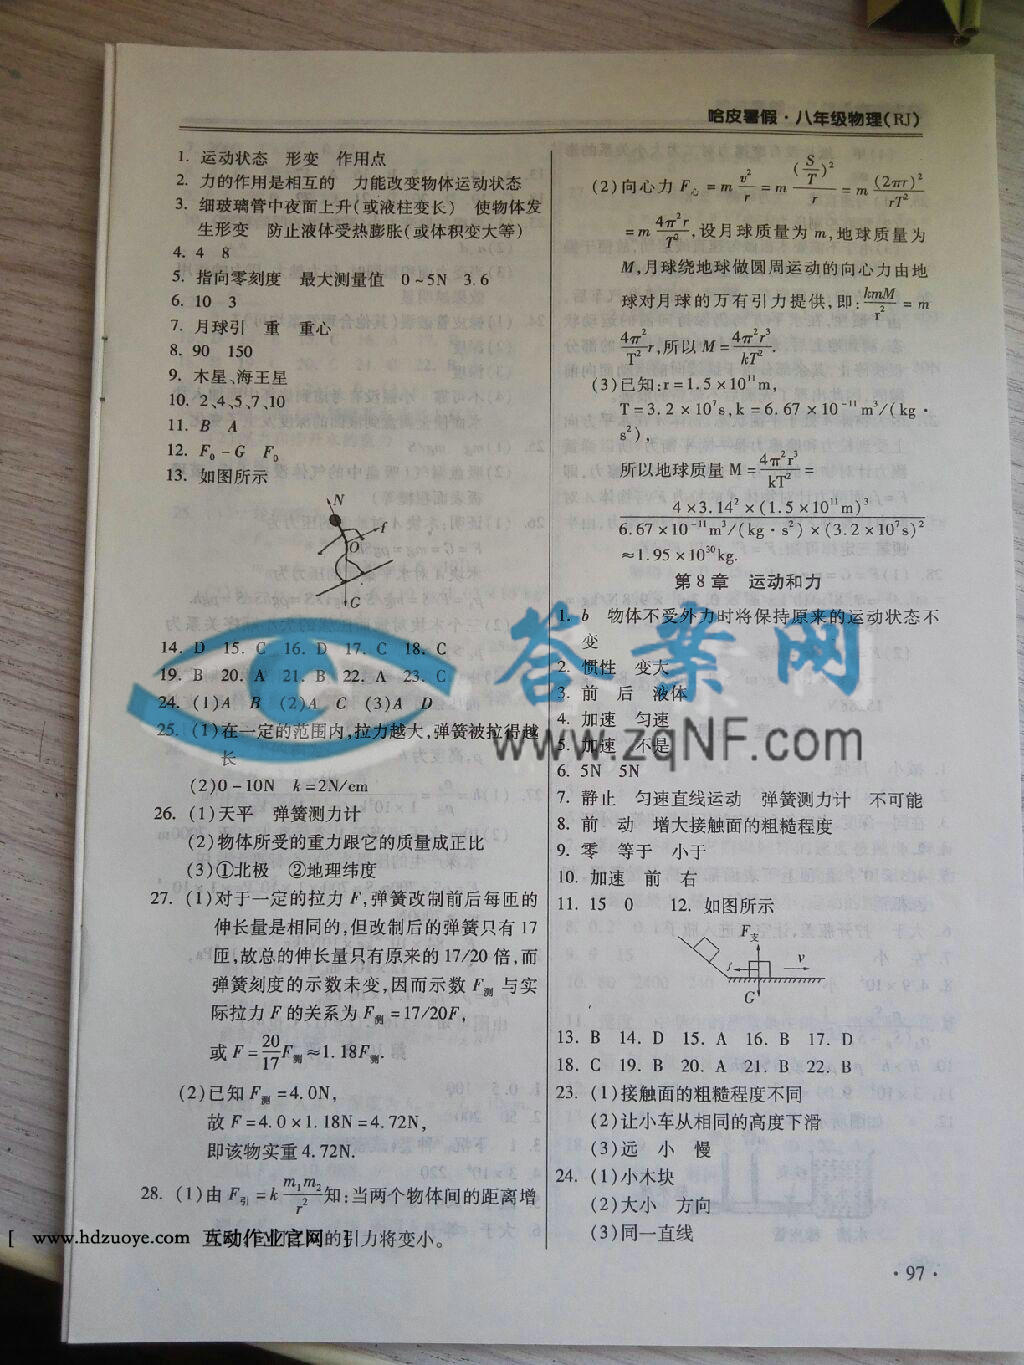 哈皮暑假·八年级物理(RJ)
1. 运动状态 形变 作用点
2. 力的作用是相互的 力能改变物体运动状态
3. 细玻璃管中夜面上升(或液柱变长) 使物体发
生形变 防止液体受热膨胀(或体积变大等)
4. 4 8
5. 指向零刻度 最大测量值 0~5N 3.6
6. 10 3
7. 月球引 重 重心
8. 90 150
9. 木星、海王星
10. 2、4、5、7、10
11. B A
12. F₀-G F₀
13. 如图所示
N
f
O
G
14. D 15. C 16. D 17. C 18. C
19. B 20. A 21. B 22. A 23. C
24. (1)A B (2)A C (3)A D
25. (1)在一定的范围内,拉力越大,弹簧被拉得越
长
(2)0-10N k=2N/cm
26. (1)天平 弹簧测力计
(2)物体所受的重力跟它的质量成正比
(3)①北极 ②地理纬度
27. (1)对于一定的拉力F,弹簧改制前后每匝的
伸长量是相同的,但改制后的弹簧只有17
匝,故总的伸长量只有原来的17/20倍,而
弹簧刻度的示数未变,因而示数F测与实
际拉力F的关系为F测=17/20F,
或F=20/17F测≈1.18F测.
(2)已知F测=4.0N,
故F=4.0×1.18N=4.72N,
即该物实重4.72N.
28. (1)由F引=k m₁m₂/r²知:当两个物体间的距离增
的引力将变小。
(2)向心力F心=m v²/r=m (S/T)²/r=m (2πr)²/rT²
=m 4π²r/T²,设月球质量为m,地球质量为
M,月球绕地球做圆周运动的向心力由地
球对月球的万有引力提供,即:kmM/r²=m
4π²/T² r,所以M=4π²r³/kT².
(3)已知:r=1.5×10¹¹m,
T=3.2×10⁷s,k=6.67×10⁻¹¹m³/(kg·
s²),
所以地球质量M=4π²r³/kT²=
4×3.14²×(1.5×10¹¹m)³/6.67×10⁻¹¹m³/(kg·s²)×(3.2×10⁷s)²
≈1.95×10³⁰kg.
第8章 运动和力
1. b 物体不受外力时将保持原来的运动状态不
变
2. 惯性 变大
3. 前 后 液体
4. 加速 匀速
5. 加速 不是
6. 5N 5N
7. 静止 匀速直线运动 弹簧测力计 不可能
8. 前 动 增大接触面的粗糙程度
9. 零 等于 小于
10. 加速 前 右
11. 15 0 12. 如图所示
F支
f
v
G
13. B 14. D 15. A 16. B 17. D
18. C 19. B 20. A 21. B 22. B
23. (1)接触面的粗糙程度不同
(2)让小车从相同的高度下滑
(3)远 小 慢
24. (1)小木块
(2)大小 方向
(3)同一直线
·97·
答案网
www.zqNF.com
[ www.hdzuoye.com 互动作业官网 ]